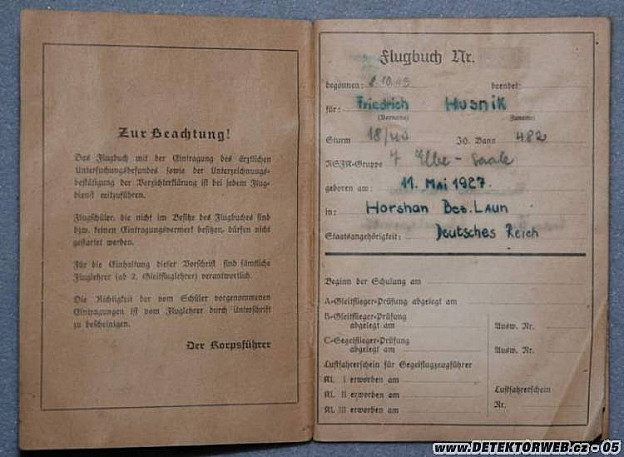 Zur Beachtung!
Das Flugbuch mit der Eintragung des ärztlichen
Untersuchungsbefundes sowie der Unterzeichnungs-
bestätigung der Verzichterklärung ist bei jedem Flug-
dienst mitzuführen.
Flugschüler, die nicht im Besitze des Flugbuches sind
bzw. keinen Eintragungsvermerk besitzen, dürfen nicht
gestartet werden.
Für die Einhaltung dieser Vorschrift sind sämtliche
Fluglehrer (ab 2. Gleitfluglehrer) verantwortlich.
Die Richtigkeit der vom Schüler vorgenommenen
Eintragungen ist vom Fluglehrer durch Unterschrift
zu bescheinigen.
Der Korpsführer
Flugbuch Nr.
begonnen: beendet:
für: Friedrich Husnik
(Vorname) (Zuname)
Sturm 18/40 Bann 482
NSFK-Gruppe 7 Elbe-Saale
geboren am: 11. Mai 1927.
in: Horshan Bes. Laun
Staatsangehörigkeit: Deutsches Reich
Beginn der Schulung am
A-Gleitflieger-Prüfung abgelegt am
B-Gleitflieger-Prüfung
abgelegt am Ausw. Nr.
C-Segelflieger-Prüfung
abgelegt am Ausw. Nr.
Luftfahrerschein für Segelflugzeugführer
Kl. I erworben am
Kl. II erworben am Luftfahrerschein
Kl. III erworben am Nr.
www.DETEKTORWEB.cz - 05